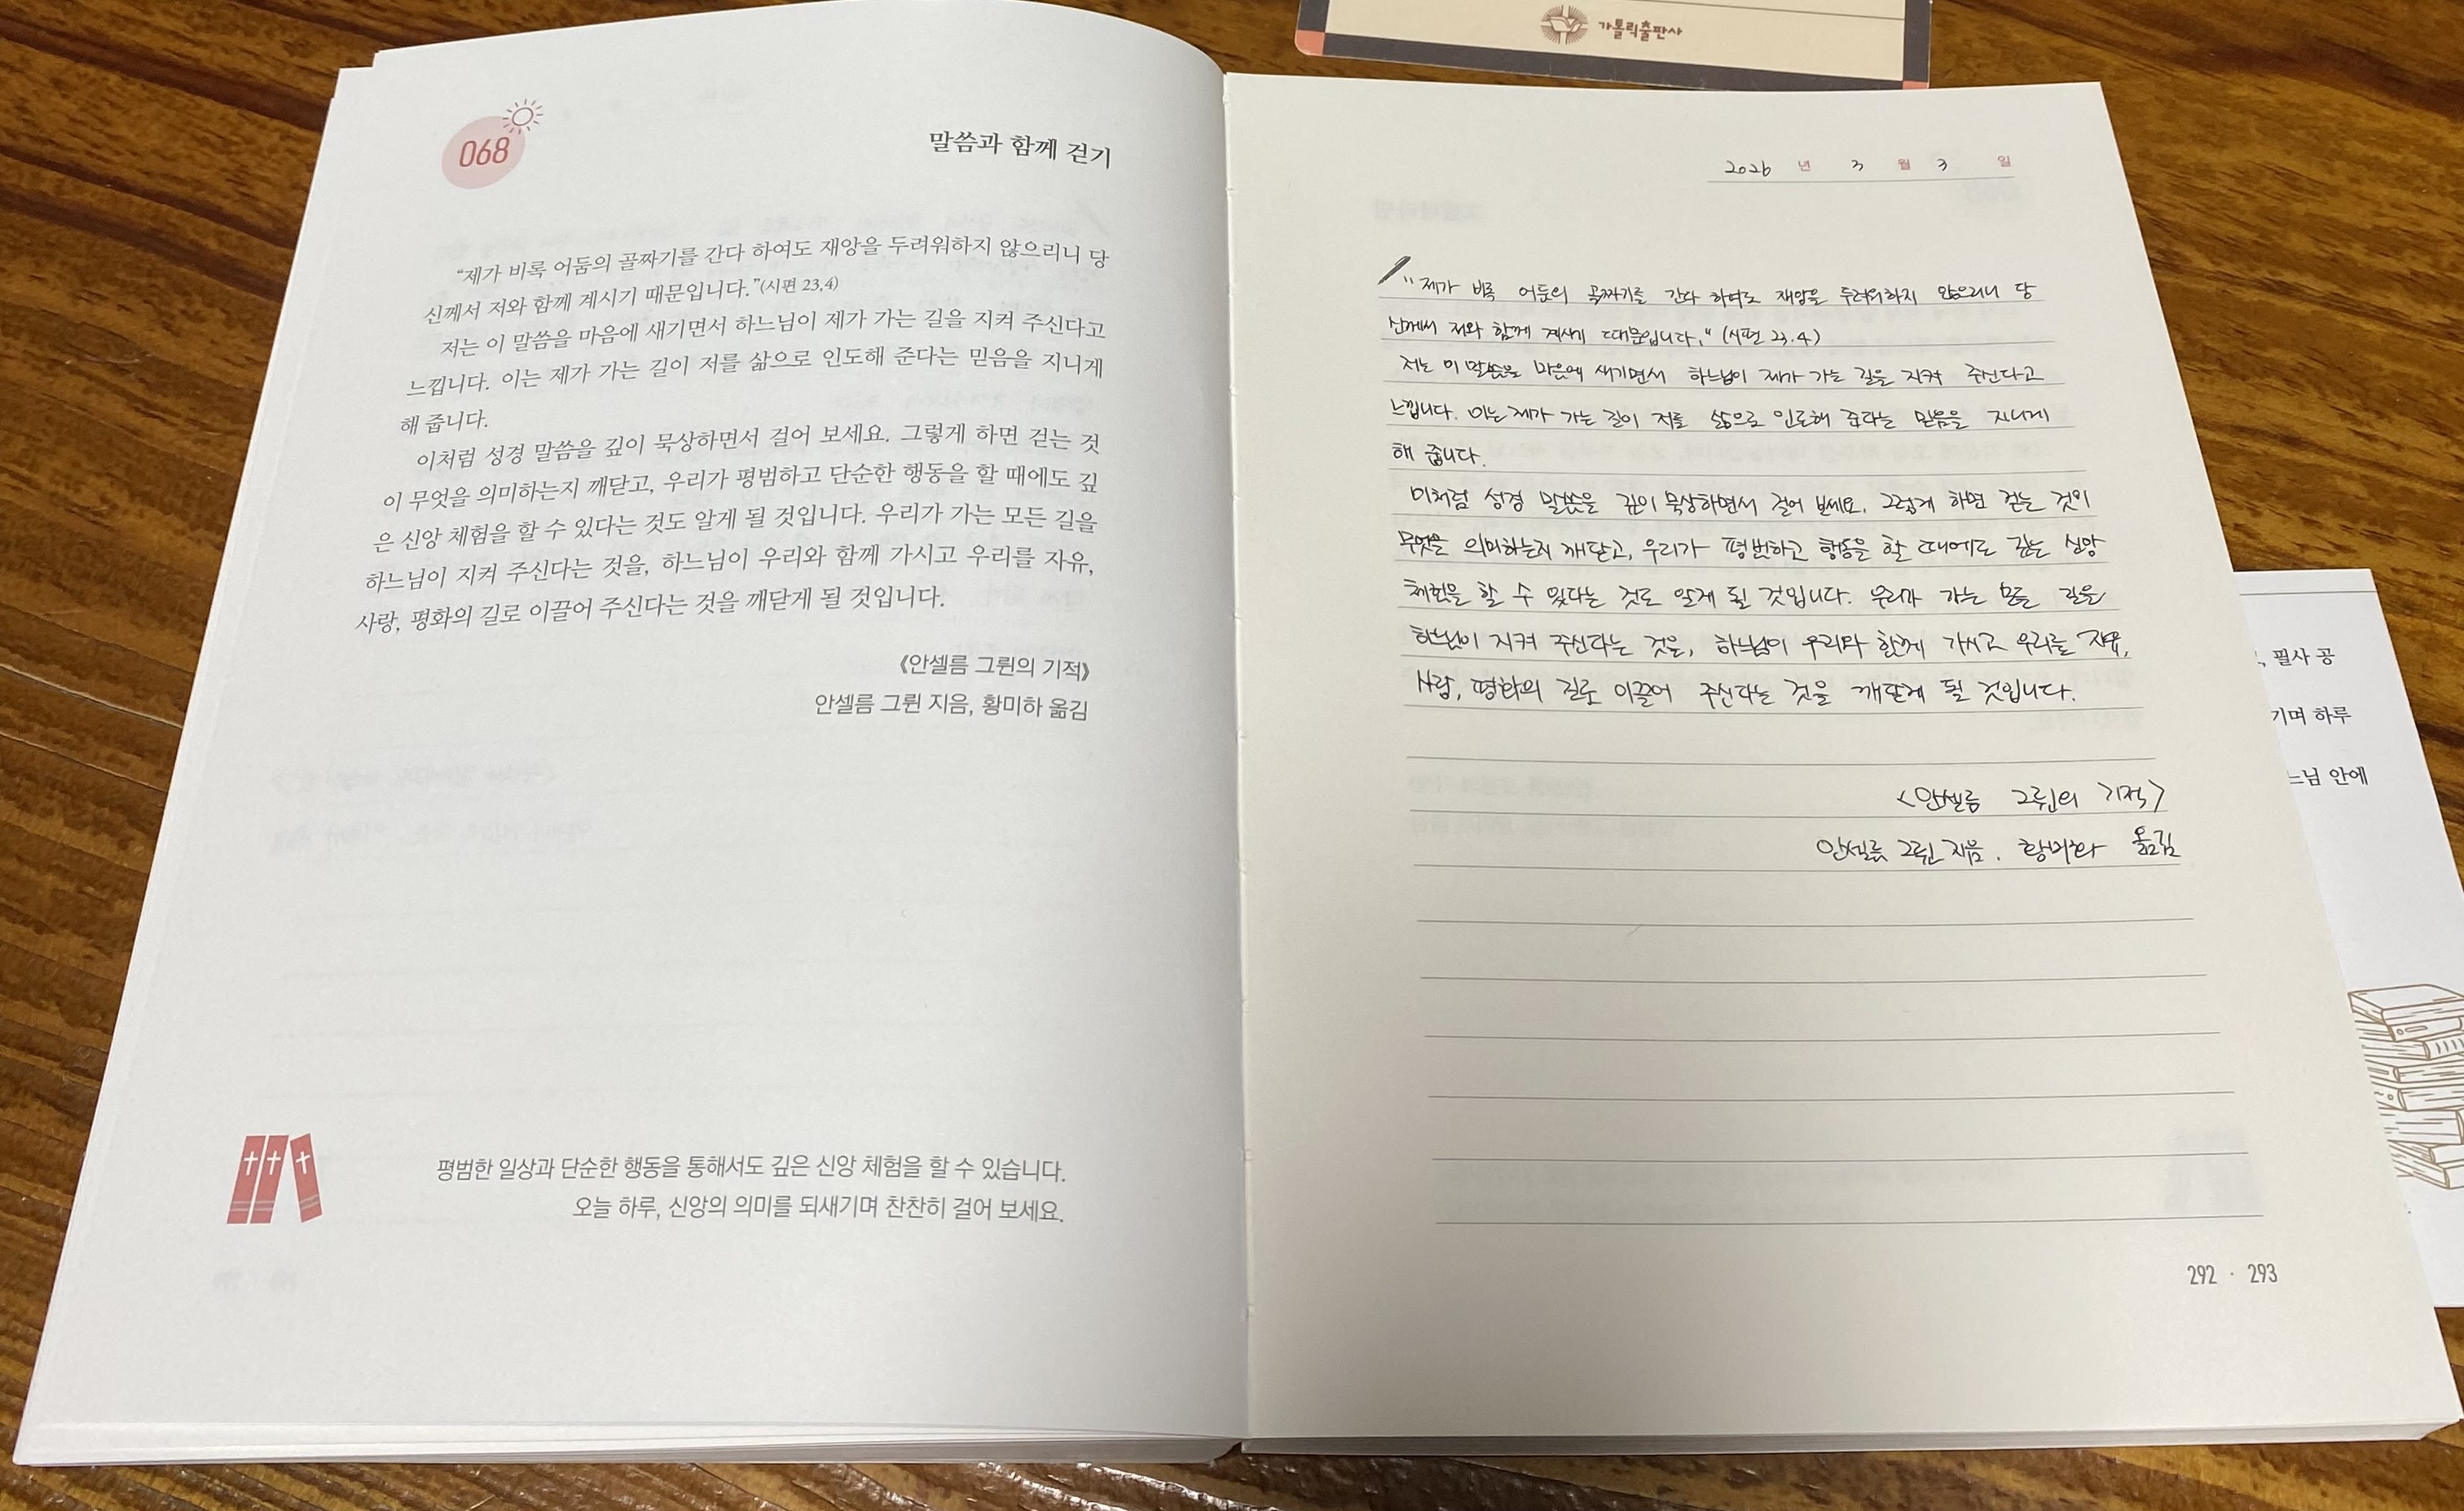 가톨릭출판사
068
말씀과 함께 걷기
“제가 비록 어둠의 골짜기를 간다 하여도 재앙을 두려워하지 않으리니 당
신께서 저와 함께 계시기 때문입니다.”(시편 23,4)
저는 이 말씀을 마음에 새기면서 하느님이 제가 가는 길을 지켜 주신다고
느낍니다. 이는 제가 가는 길이 저를 삶으로 인도해 준다는 믿음을 지니게
해 줍니다.
이처럼 성경 말씀을 깊이 묵상하면서 걸어 보세요. 그렇게 하면 걷는 것
이 무엇을 의미하는지 깨닫고, 우리가 평범하고 단순한 행동을 할 때에도 깊
은 신앙 체험을 할 수 있다는 것도 알게 될 것입니다. 우리가 가는 모든 길을
하느님이 지켜 주신다는 것을, 하느님이 우리와 함께 가시고 우리를 자유,
사랑, 평화의 길로 이끌어 주신다는 것을 깨닫게 될 것입니다.
《안셀름 그륀의 기적》
안셀름 그륀 지음, 황미하 옮김
평범한 일상과 단순한 행동을 통해서도 깊은 신앙 체험을 할 수 있습니다.
오늘 하루, 신앙의 의미를 되새기며 찬찬히 걸어 보세요.
2026 년 3 월 3 일
"제가 비록 어둠의 골짜기를 간다 하여도 재앙을 두려워하지 않으리니 당
신께서 저와 함께 계시기 때문입니다." (시편 23.4)
저는 이 말씀을 마음에 새기면서 하느님이 제가 가는 길을 지켜 주신다고
느낍니다. 이는 제가 가는 길이 저를 삶으로 인도해 준다는 믿음을 지니게
해 줍니다.
이처럼 성경 말씀을 깊이 묵상하면서 걸어 보세요. 그렇게 하면 걷는 것이
무엇을 의미하는지 깨닫고, 우리가 평범하고 행동을 할 때에도 깊은 신앙
체험을 할 수 있다는 것도 알게 될 것입니다. 우리가 가는 모든 길을
하느님이 지켜 주신다는 것을, 하느님이 우리와 함께 가시고 우리를 자유,
사랑, 평화의 길로 이끌어 주신다는 것을 깨닫게 될 것입니다.
<안셀름 그륀의 기적>
안셀름 그륀 지음. 황미하 옮김
292 · 293
, 필사 공
기며 하루
느님 안에